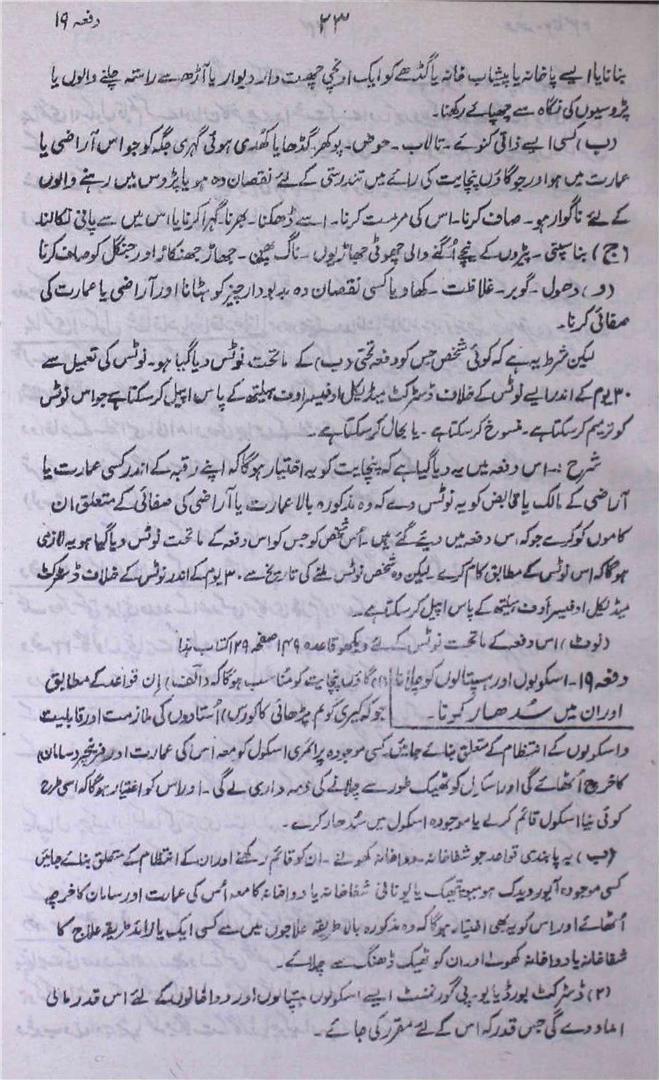 دفعہ ۱۹
۲۳
بنانا یا ایسے پاخانہ یا پیشاب خانہ یا گڈھے کو ایک اونچی چھت دار دیوار یا آڑھ سے راستہ چلنے والوں یا
پڑوسیوں کی نگاہ سے چھپائے رکھنا۔
(ب) کسی ایسے ذاتی کنوئے۔ تالاب۔ حوض۔ پوکھر۔ گڈھا یا کھُدی ہوئی گہری جگہ کو جو اس آراضی یا
عمارت میں ہو اور جو گاؤں پنچایت کی رائے میں تندرستی کے لئے نقصان دہ ہو یا پڑوس میں رہنے والوں
کے لئے ناگوار ہو۔ صاف کرنا۔ اس کی مرمت کرنا۔ اسے ڈھکنا۔ بھرنا۔ گہرا کرنا یا اس میں سے پانی نکالنا
(ج) بناسپتی۔ پیڑوں کے نیچے اُگنے والی چھوٹی جھاڑیوں۔ ناگ پھن۔ جھاڑ جھنکاڑ اور جنگل کو صاف کرنا
(د) دھول۔ گوبر۔ غلاظت۔ کھاد یا کسی نقصان دہ بدبودار چیز کو ہٹانا اور آراضی یا عمارت کی
صفائی کرنا۔
لیکن شرط یہ ہے کہ کوئی شخص جس کو دفعہ تحتی (ب) کے ماتحت نوٹس دیا گیا ہو۔ نوٹس کی تعمیل سے
۳۰ یوم کے اندر ایسے نوٹس کے خلاف ڈسٹرکٹ میڈیکل اوفیسر اوف ہیلتھ کے پاس اپیل کر سکتا ہے جو اس نوٹس
کو ترمیم کر سکتا ہے۔ منسوخ کر سکتا ہے۔ یا بحال کر سکتا ہے۔
شرح :۔ اس دفعہ میں یہ دیا گیا ہے کہ پنچایت کو یہ اختیار ہوگا کہ اپنے رقبہ کے اندر کسی عمارت یا
آراضی کے مالک یا قابض کو یہ نوٹس دے کہ وہ مذکورہ بالا عمارت یا آراضی کی صفائی کے متعلق ان
کاموں کو کرے جو کہ اس دفعہ میں دیئے گئے ہیں۔ اُس شخص کو جس کو اس دفعہ کے ماتحت نوٹس دیا گیا ہو یہ لازمی
ہوگا کہ اس نوٹس کے مطابق کام کرے۔ لیکن وہ شخص نوٹس ملنے کی تاریخ سے ۳۰ یوم کے اندر نوٹس کے خلاف ڈسٹرکٹ
میڈیکل اوفیسر اوف ہیلتھ کے پاس اپیل کر سکتا ہے۔
(نوٹ) اس دفعہ کے ماتحت نوٹس کے لئے دیکھو قاعدہ ۱۴۹ صفحہ ۲۹ کتاب ہذا
دفعہ ۱۹۔ اسکولوں اور ہسپتالوں کو چلانا (۱) گاؤں پنچایت کو مناسب ہوگا کہ (الف) اِن قواعد کے مطابق
اور ان میں سُدھار کرنا۔ جو کہ کیری کولم پڑھائی کا کورس) اُستادوں کی ملازمت اور قابلیت
و اسکولوں کے انتظام کے متعلق بنائے جائیں۔ کسی موجودہ پرائمری اسکول کو معہ اس کی عمارت اور فرنیچر (سامان)
کا خرچ اُٹھائے گی اور اسکول کو ٹھیک طور سے چلانے کی ذمہ داری لے گی۔ اور اس کو اختیار ہوگا کہ اسی طرح
کوئی نیا اسکول قائم کرلے یا موجودہ اسکول میں سُدھار کرے۔
(ب) بہ پابندی قواعد جو شفاخانہ۔ دواخانہ کھولنے۔ ان کو قائم رکھنے اور ان کے انتظام کے متعلق بنائے جائیں
کسی موجودہ آیورویدک ہومیوپیتھک یا یونانی شفاخانہ یا دواخانہ کا معہ اُس کی عمارت اور سامان کا خرچہ
اُٹھائے اور اس کو یہ بھی اختیار ہوگا کہ وہ مذکورہ بالا طریقہ علاجوں میں سے کسی ایک یا زائد طریقہ علاج کا
شفاخانہ یا دواخانہ کھولے اور ان کو ٹھیک ڈھنگ سے چلائے۔
(۲) ڈسٹرکٹ بورڈ یا یو۔ پی گورنمنٹ ایسے اسکولوں ہسپتالوں اور دواخانوں کے لئے اس قدر مالی
امداد دے گی جس قدر کہ اس کے لئے مقرر کی جائے۔